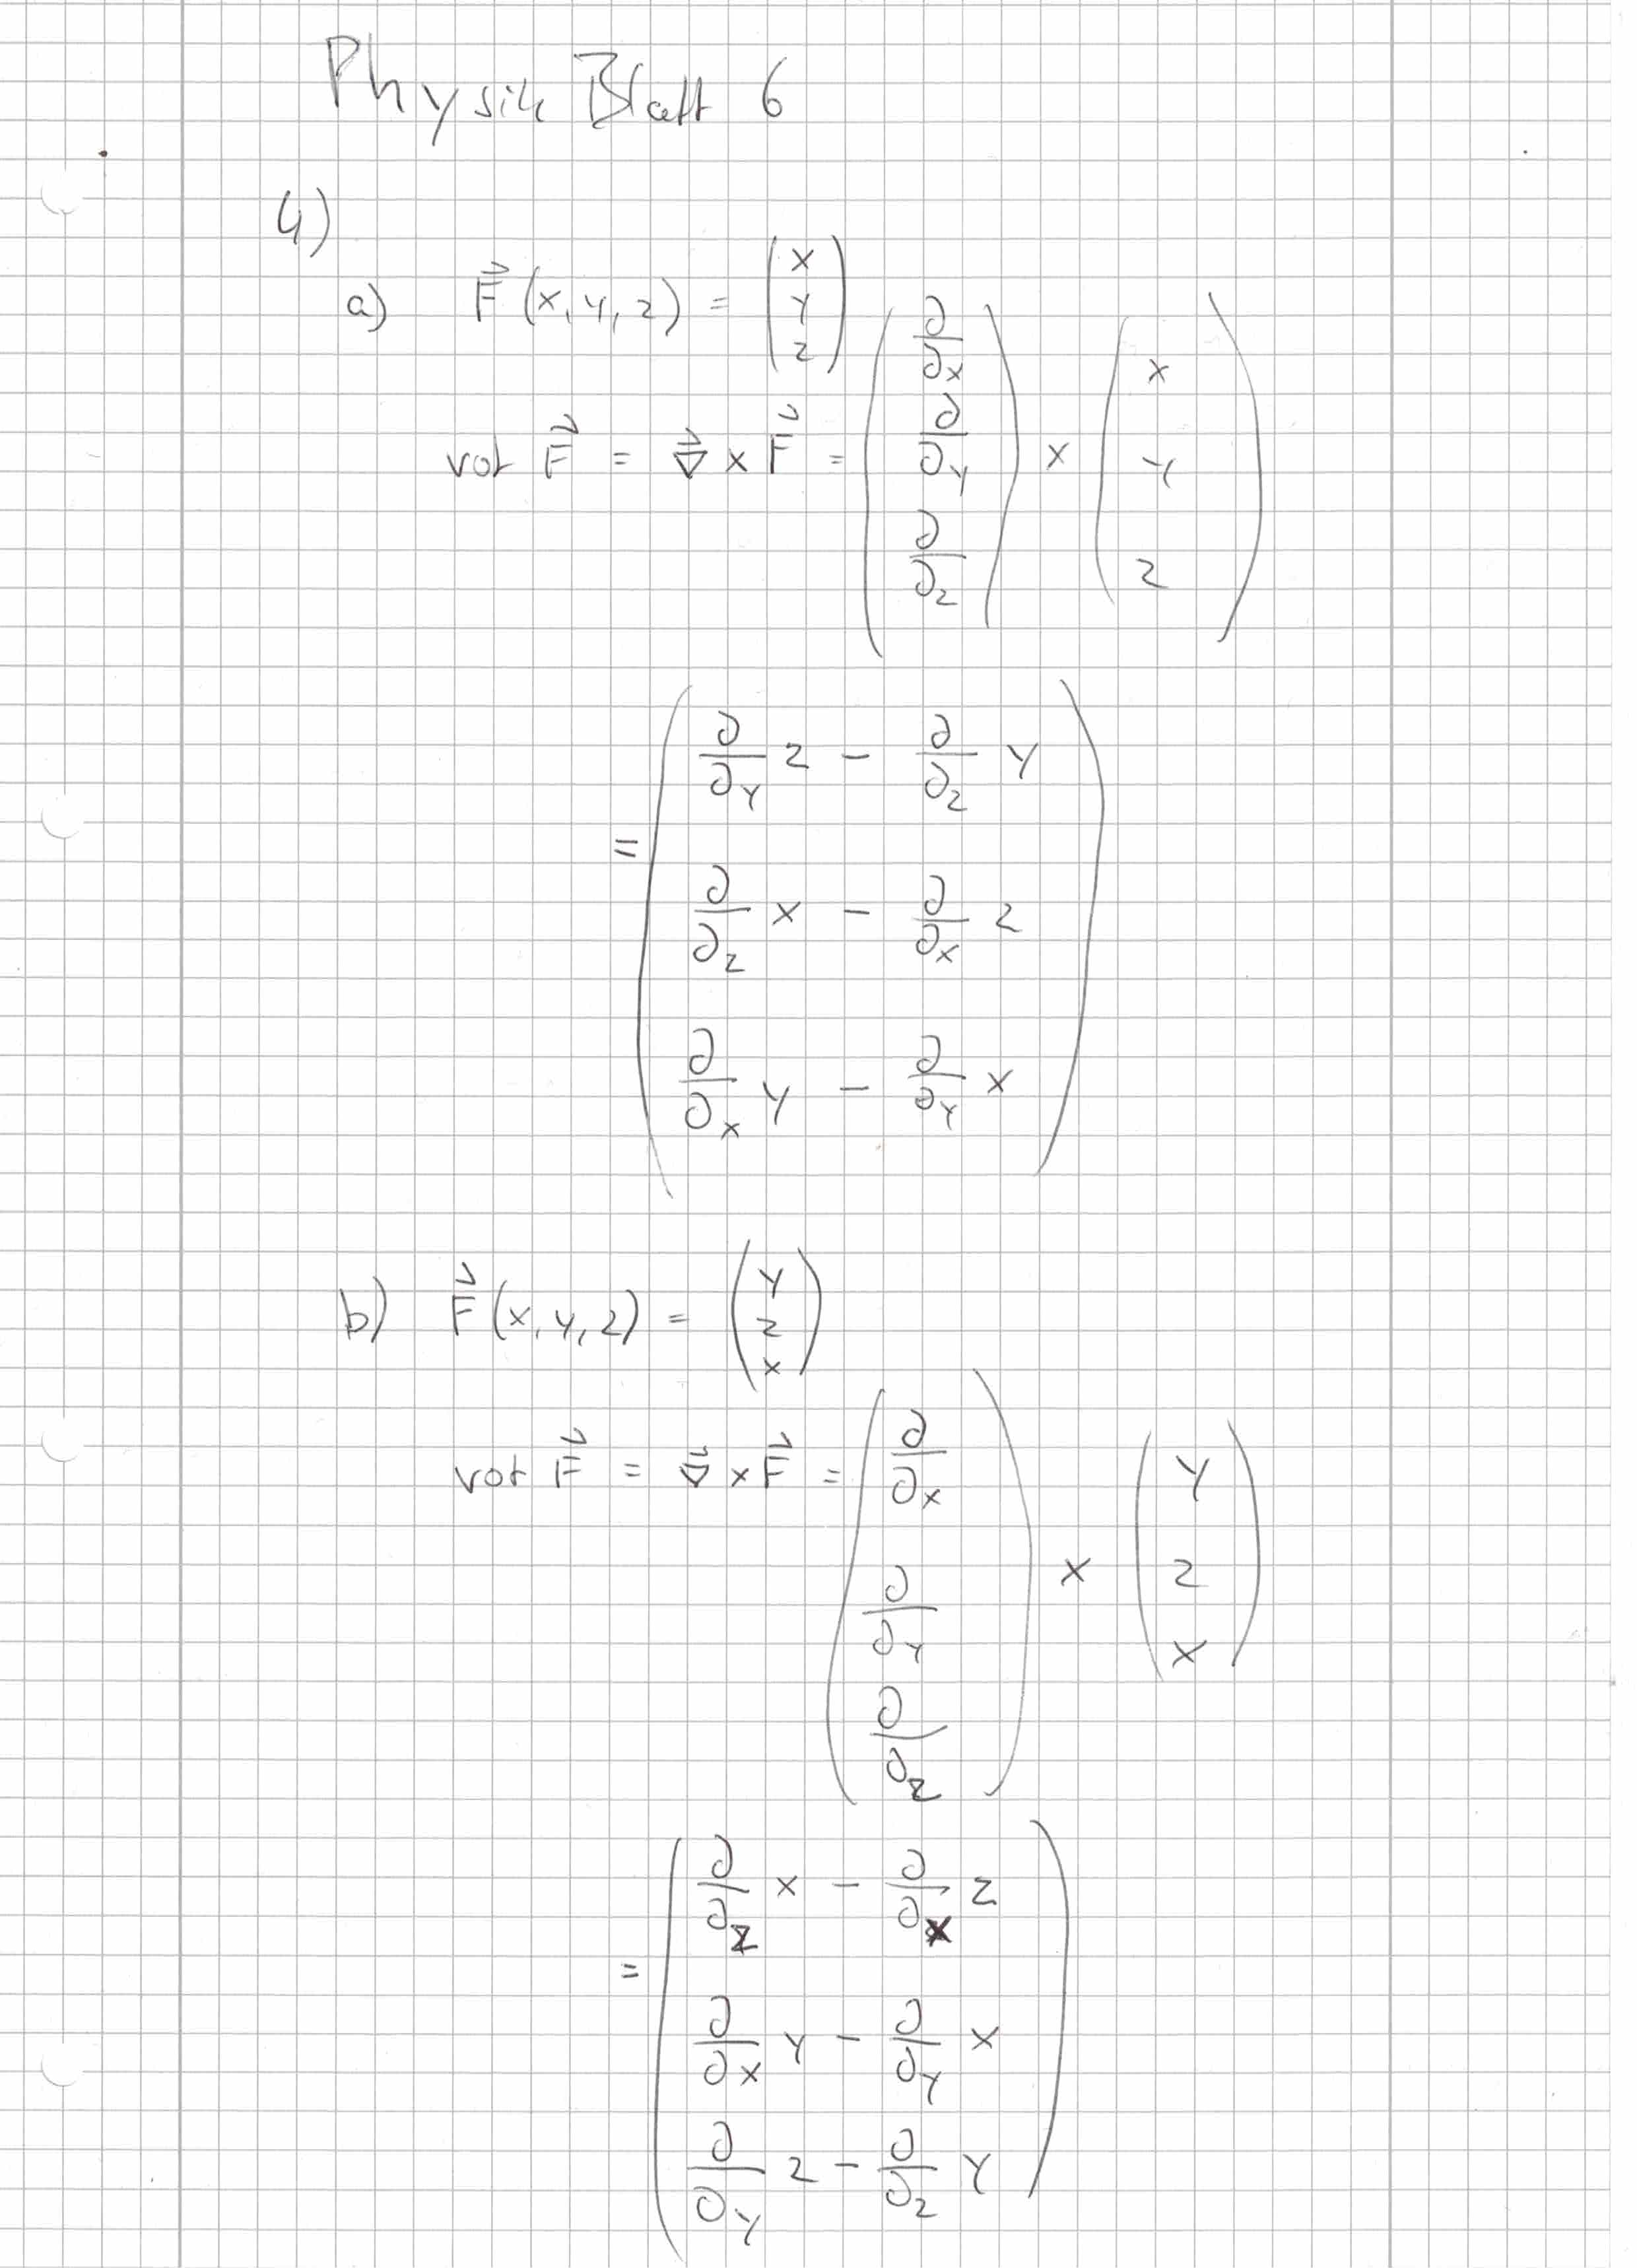 Physik Blatt 6
4)
a) \vec{F}(x,y,z) = \begin{pmatrix} x \\ y \\ z \end{pmatrix}
rot \vec{F} = \vec{\nabla} \times \vec{F} = \begin{pmatrix} \frac{\partial}{\partial x} \\ \frac{\partial}{\partial y} \\ \frac{\partial}{\partial z} \end{pmatrix} \times \begin{pmatrix} x \\ y \\ z \end{pmatrix}
= \begin{pmatrix} \frac{\partial}{\partial y} z - \frac{\partial}{\partial z} y \\ \frac{\partial}{\partial z} x - \frac{\partial}{\partial x} z \\ \frac{\partial}{\partial x} y - \frac{\partial}{\partial y} x \end{pmatrix}
b) \vec{F}(x,y,z) = \begin{pmatrix} y \\ z \\ x \end{pmatrix}
rot \vec{F} = \vec{\nabla} \times \vec{F} = \begin{pmatrix} \frac{\partial}{\partial x} \\ \frac{\partial}{\partial y} \\ \frac{\partial}{\partial z} \end{pmatrix} \times \begin{pmatrix} y \\ z \\ x \end{pmatrix}
= \begin{pmatrix} \frac{\partial}{\partial z} x - \frac{\partial}{\partial x} z \\ \frac{\partial}{\partial x} y - \frac{\partial}{\partial y} x \\ \frac{\partial}{\partial y} z - \frac{\partial}{\partial z} y \end{pmatrix}